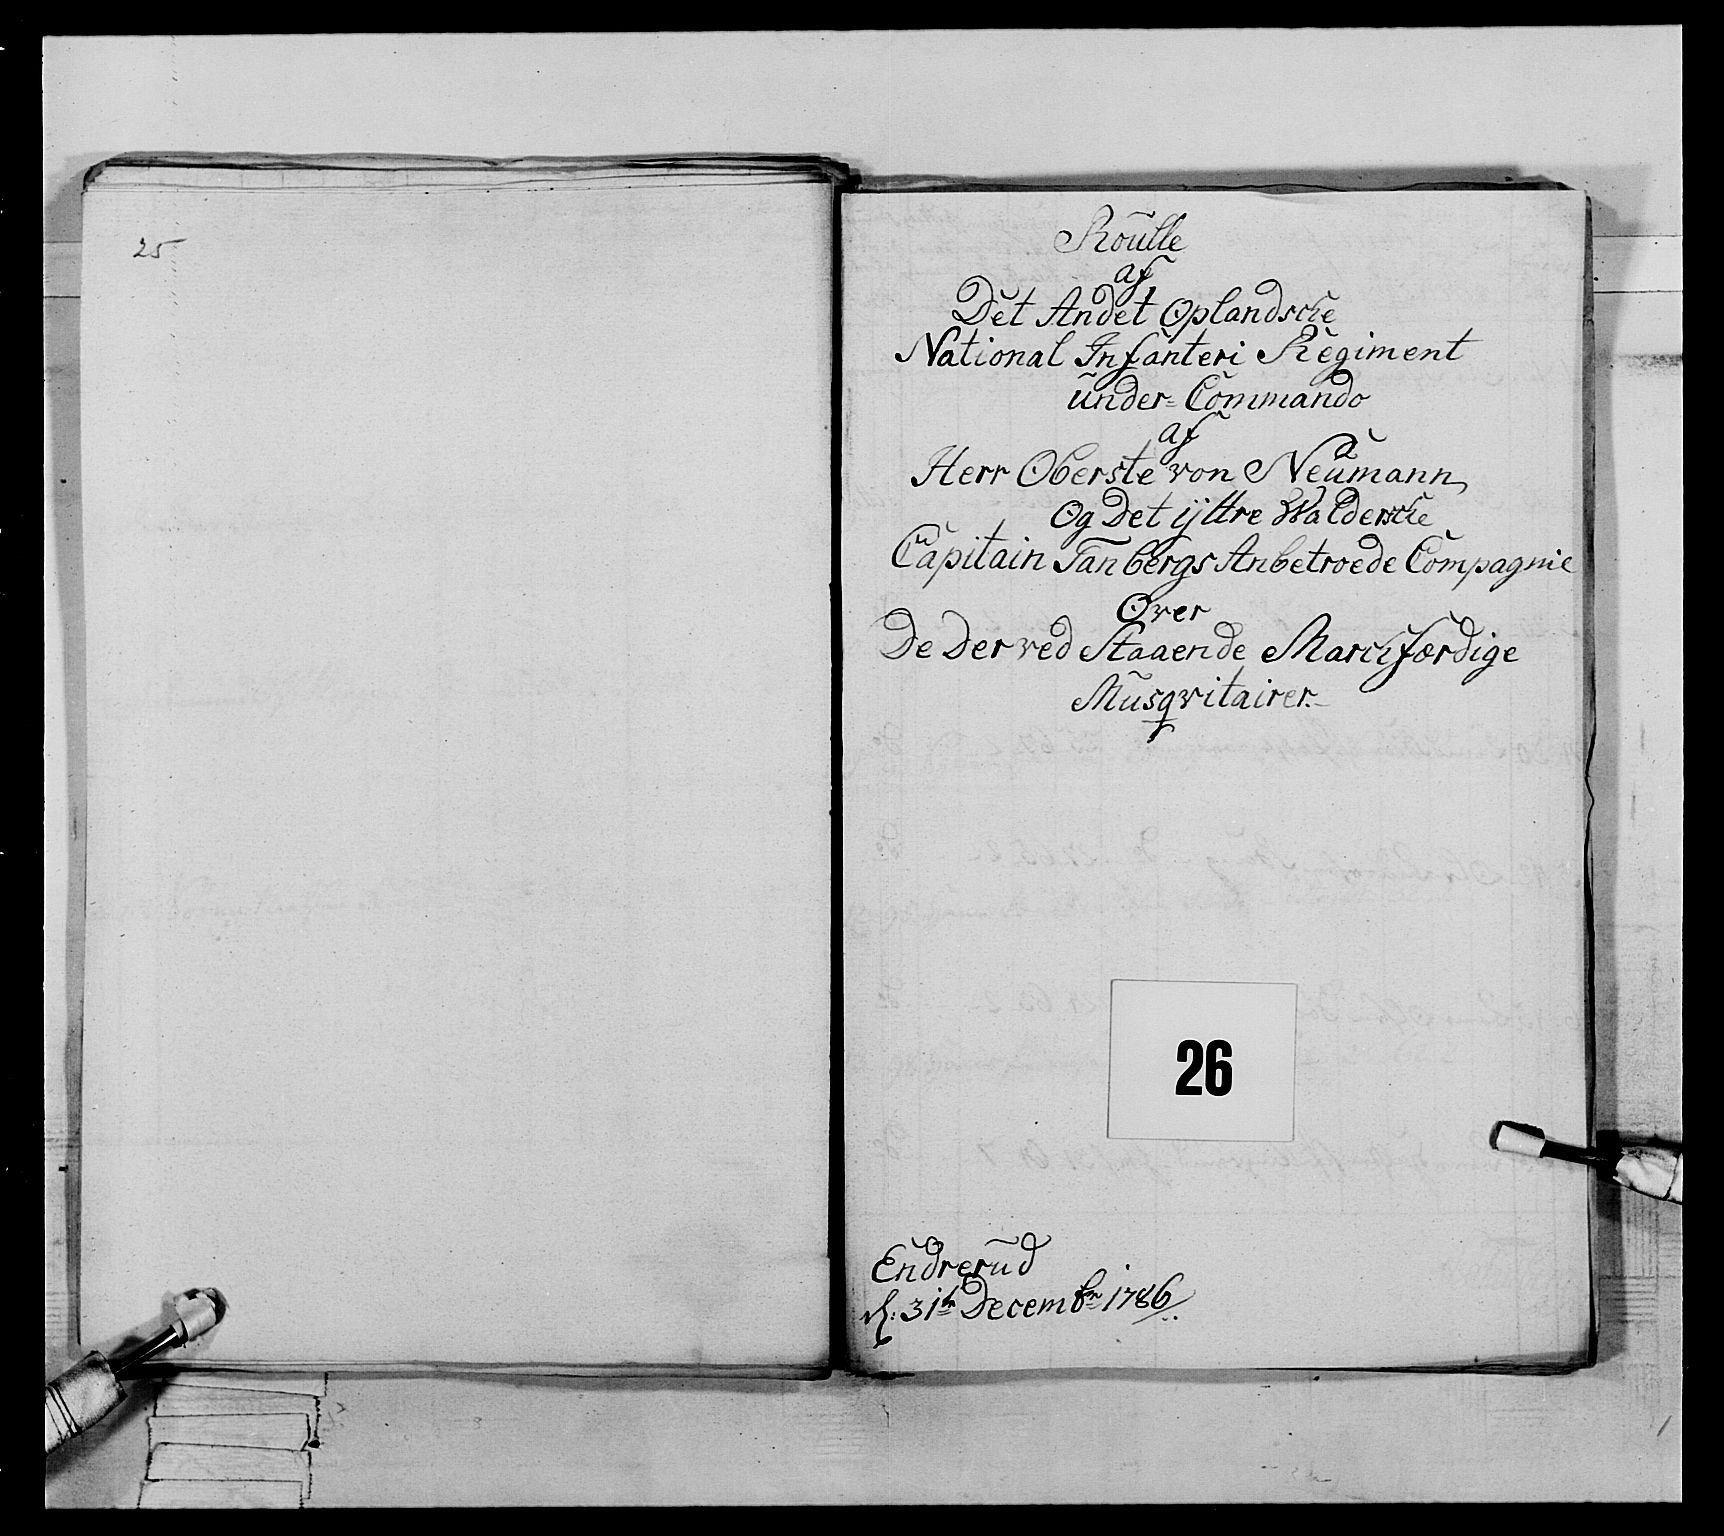 25
Roulle
af
Det Andet Oplandsche
National Infanteri Regiment
under Commando
af
Herr Oberste von Neumann
Og Det ÿttre Waldersche
Capitain Tanbergs Anbetroede Compagnie
Over
De Der ved Staaende Marchfærdige
Musqvitairer.
26
Endrerud
d: 31te Decembr 1786